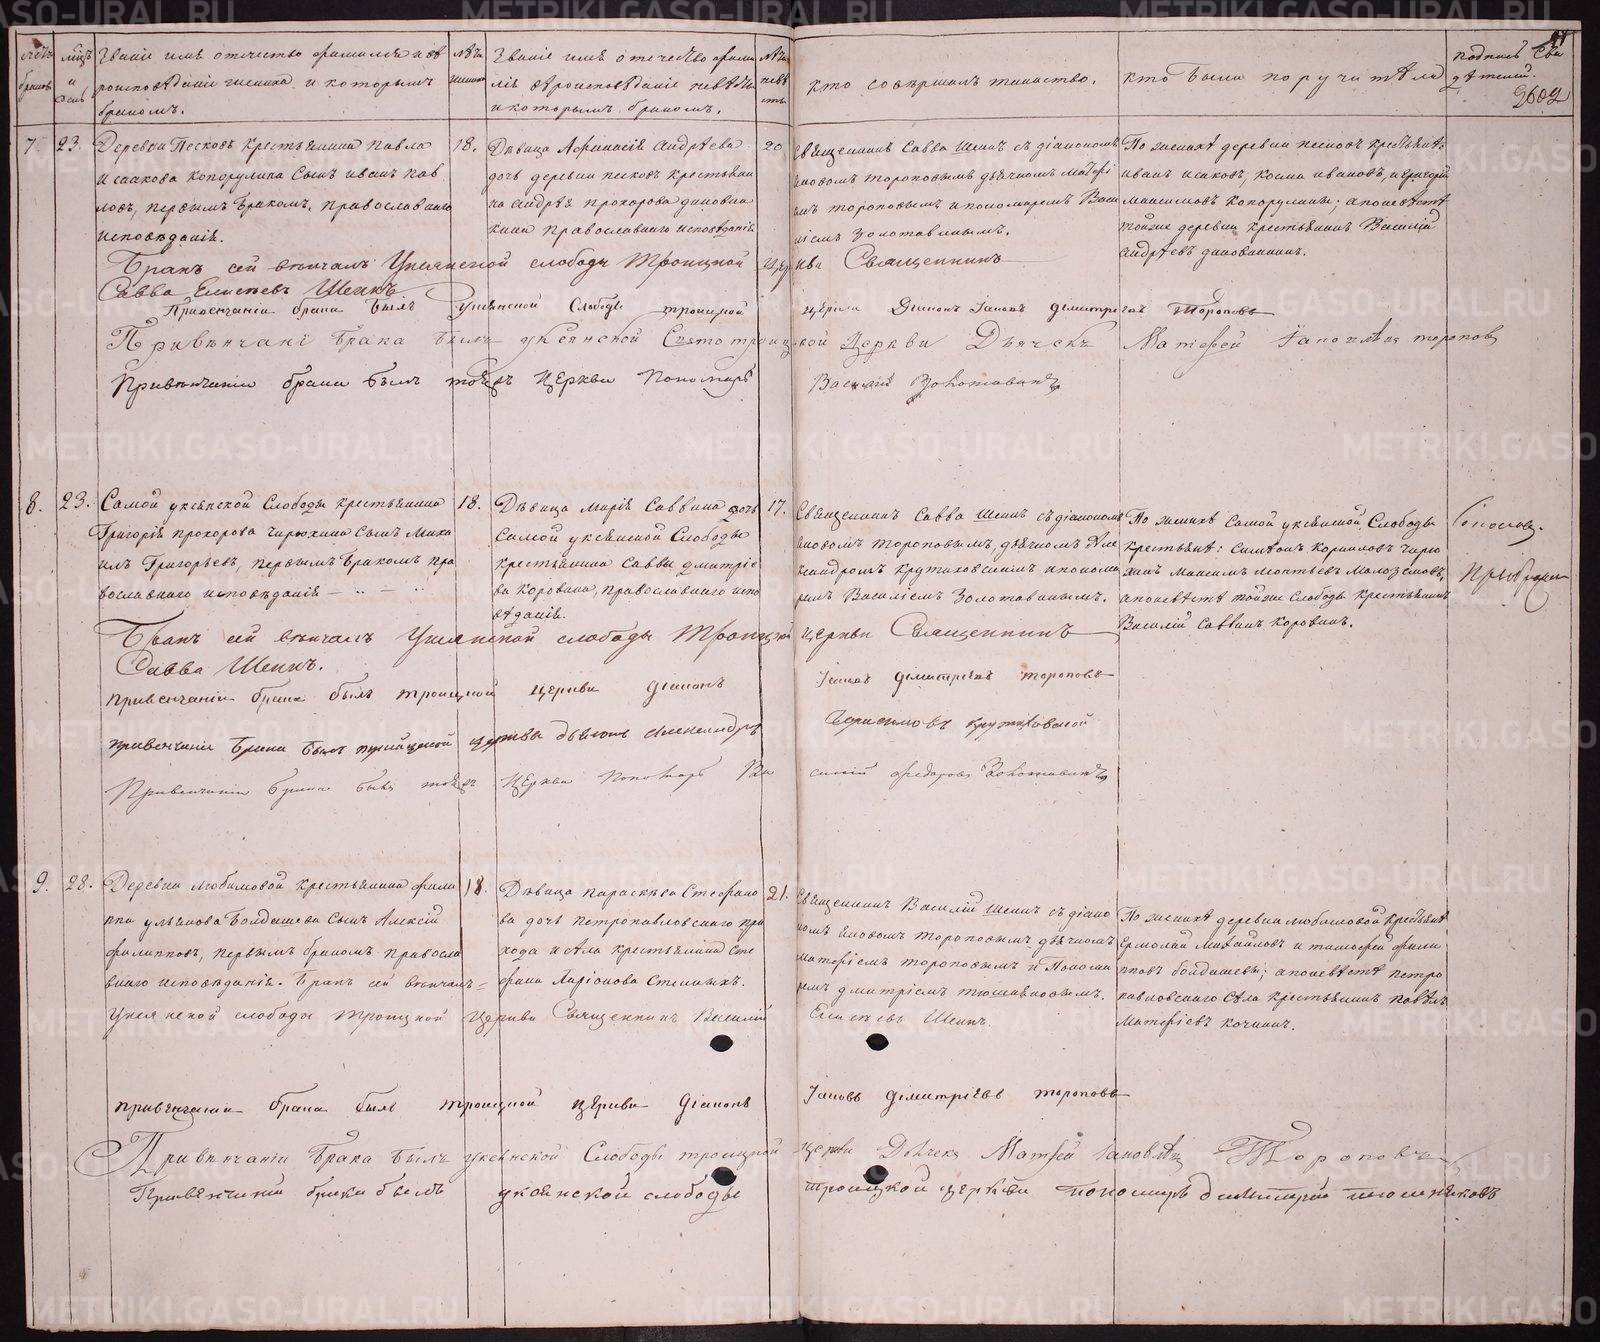 METRIKI.GASO-URAL.RU
счетъ браковъ
мѣцъ и день
Званiе имѣ отечество фамилiя и вѣ
роисповѣданiе жениха и которымъ
бракомъ.
лѣта жениха
Званiе имѣ отечество фами
лiя вѣроисповѣданiе невѣсты
и которымъ бракомъ.
лѣта невѣсты
кто совершалъ таинство.
кто были поручители
подпись сви
дѣтелей.
7
23.
Деревни Песковъ крестьянина Павла
Исаакова Копорулина Сынъ иванъ пав
ловъ, первымъ бракомъ, православнаго
исповѣданiя.
18.
Дѣвица Афанасiя андрѣева
дочь деревни песковъ крестьяни
на андрѣя прохорова
православнаго исповѣданiя
20
Священникъ Савва Шенинъ съ дiакономъ
Iяковомъ тороповымъ дьячкомъ Матфi
емъ тороповымъ и пономаремъ Васи
лiемъ Золотавинымъ.
По женихѣ деревни песковъ крестьяне:
иванъ исаковъ, косма ивановъ, и григорiй
максимовъ копорулины; а по невѣстѣ
тойже деревни крестьянинъ Василiй
андрѣевъ
Бракъ сей вѣнчалъ Уксянской слободы Троицкой церкви Священникъ
Савва Елисѣевъ Шенинъ
Привенчанiи брака былъ Уксянской Слободы троицкой церкви Дiаконъ Iаковъ Димитрiевъ Тороповъ
Привѣнчанi брака былъ уксянской Святотроицкой Церкви Дьячекъ Матфей Iаковлевъ тороповъ
Привѣнчанiи брака былъ тойжъ церкви Пономарь Василiй Золотавинъ
8.
23.
Самой уксянской Слободы крестьянина
Григорiя прохорова чирюхина Сынъ Миха
илъ Григорьевъ, первымъ бракомъ пра
вославнаго исповѣданiя
18.
Дѣвица марiя Саввина дочь
Самой уксянской Слободы
крестьянина Саввы дмитрiе
ва коровина, православнаго испо
вѣданiя.
17.
Священникъ Савва Шенинъ съ дiакономъ
Iяковомъ тороповымъ, дьячкомъ Але
ксандромъ крутиховскимъ и понома
ремъ Василiемъ Золотавинымъ.
По женихѣ Самой уксянской Слободы
крестьяне: Симеонъ корниловъ чирю
хинъ максимъ леонтьевъ малоземовъ,
а по невѣстѣ тойже слободы крестьянинъ
Василiй Саввинъ коровинъ.
Бракъ сей вѣнчалъ Уксянской слободы Троицкой церкви Священникъ
Савва Шенинъ.
привенчанiи брака былъ троицкой церкви дiаконъ Iаковъ димитрiевъ тороповъ
привенчанiи брака былъ троицкой церкви дьячекъ Александръ
Привенчанiи брака былъ тойжъ церкви Пономарь Василiй Федоровъ Золотавинъ
9.
28.
Деревни любимовой крестьянина фили
ппа ульянова Бондашева Сынъ Алексiй
филипповъ, первымъ бракомъ правосла
внаго исповѣданiя. Бракъ сей вѣнчалъ
18.
Дѣвица параскѣва Стефано
ва дочь петропавловскаго при
хода и села крестьянина Сте
фана Ларiонова Степныхъ.
21.
Священникъ Василiй Шенинъ съ дiако
номъ Iяковомъ тороповымъ дьячкомъ
матфiемъ тороповымъ и Понома
ремъ дмитрiемъ тюшняковымъ.
По женихѣ деревни любимовой крестьяне
Ермолай михайловъ и тимофей фили
пповъ бондашевы; а по невѣстѣ петро
павловскаго села крестьянинъ павелъ
матфiевъ кочнинъ.
Уксянской слободы Троицкой Церкви Священникъ Василiй Елисѣевъ Шенинъ.
привенчанiи брака былъ троицкой церкви дiаконъ Iаковъ димитрiевъ тороповъ
Привѣнчанiи брака былъ уксянской Слободы троицкой церкви Дьячекъ Матфей Iаковлевъ Тороповъ
Привѣнчанiи брака былъ уксянской слободы троицкой церкви пономарь димитрiй тюшняковъ